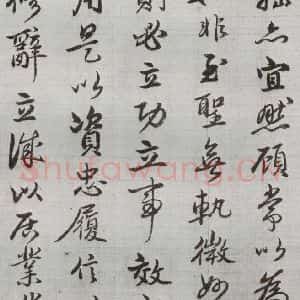 拙亦宜然顧常以為
非至聖無軌微妙
則必立功立事效
用是以資忠履信
修辭立誠以居業
Shufawang.cn